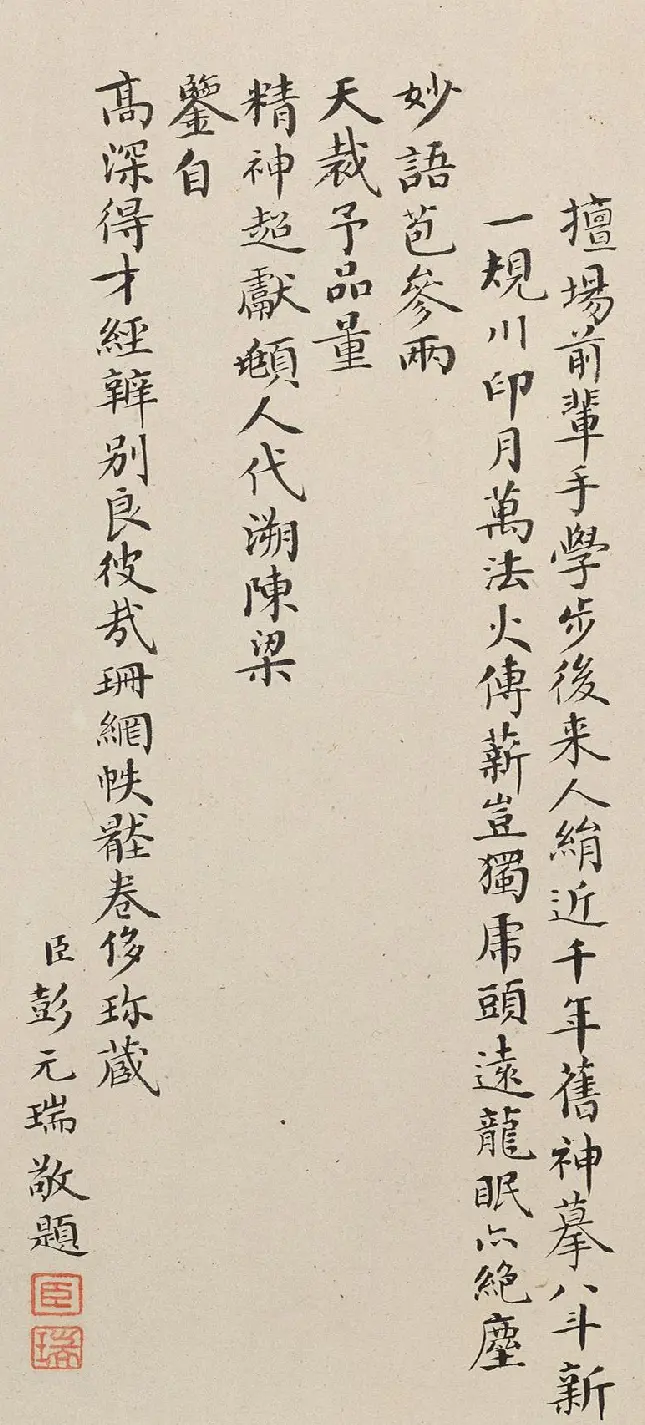 擅場前輩手學步後来人絹近千年舊神摹八斗新
一規川印月萬法火傳薪豈獨虎頭遠龍眠亦絕塵
妙語苞參兩
天裁予品量
精神超獻人代溯陳梁
鑒自
高深得才經辨別良彼哉珊網帙卷侈珍藏
臣彭元瑞敬題
臣
瑞